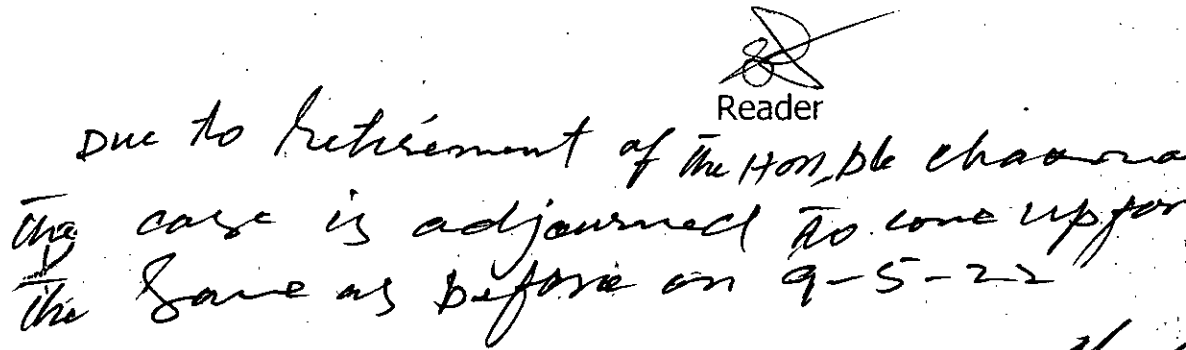 Reader
Due to Retirement of the Hon,ble
the case is adjourned to come up for
the Same as before on 9-5-22